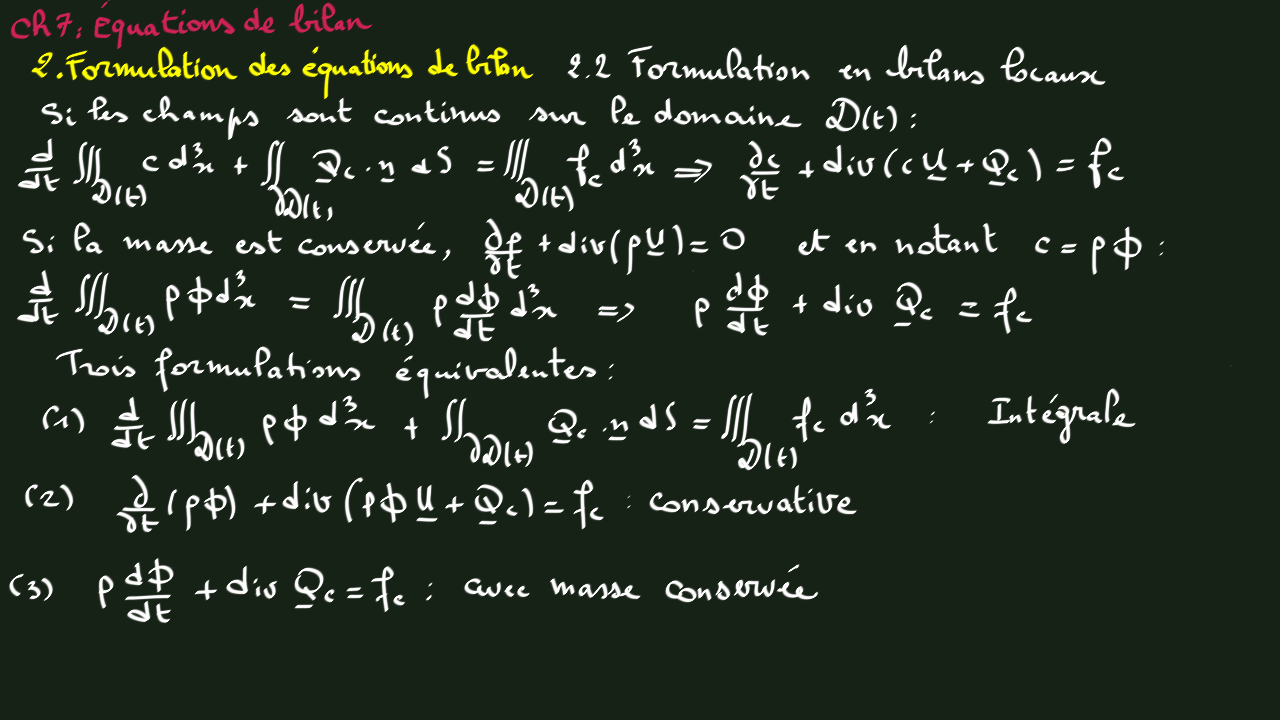 Ch 7: Équations de bilan
2. Formulation des équations de bilan 2.2 Formulation en bilans locaux
Si les champs sont continus sur le domaine 𝒟(t) :
d/dt ∭_𝒟(t) c d³x + ∬_∂𝒟(t) Q_c · n dS = ∭_𝒟(t) f_c d³x ⇒ ∂c/∂t + div (c U + Q_c) = f_c
Si la masse est conservée, ∂ρ/∂t + div(ρ U) = 0 et en notant c = ρ ϕ :
d/dt ∭_𝒟(t) ρ ϕ d³x = ∭_𝒟(t) ρ dϕ/dt d³x ⇒ ρ dϕ/dt + div Q_c = f_c
Trois formulations équivalentes :
(1) d/dt ∭_𝒟(t) ρ ϕ d³x + ∬_∂𝒟(t) Q_c · n dS = ∭_𝒟(t) f_c d³x : Intégrale
(2) ∂/∂t (ρ ϕ) + div (ρ ϕ U + Q_c) = f_c : conservative
(3) ρ dϕ/dt + div Q_c = f_c : avec masse conservée